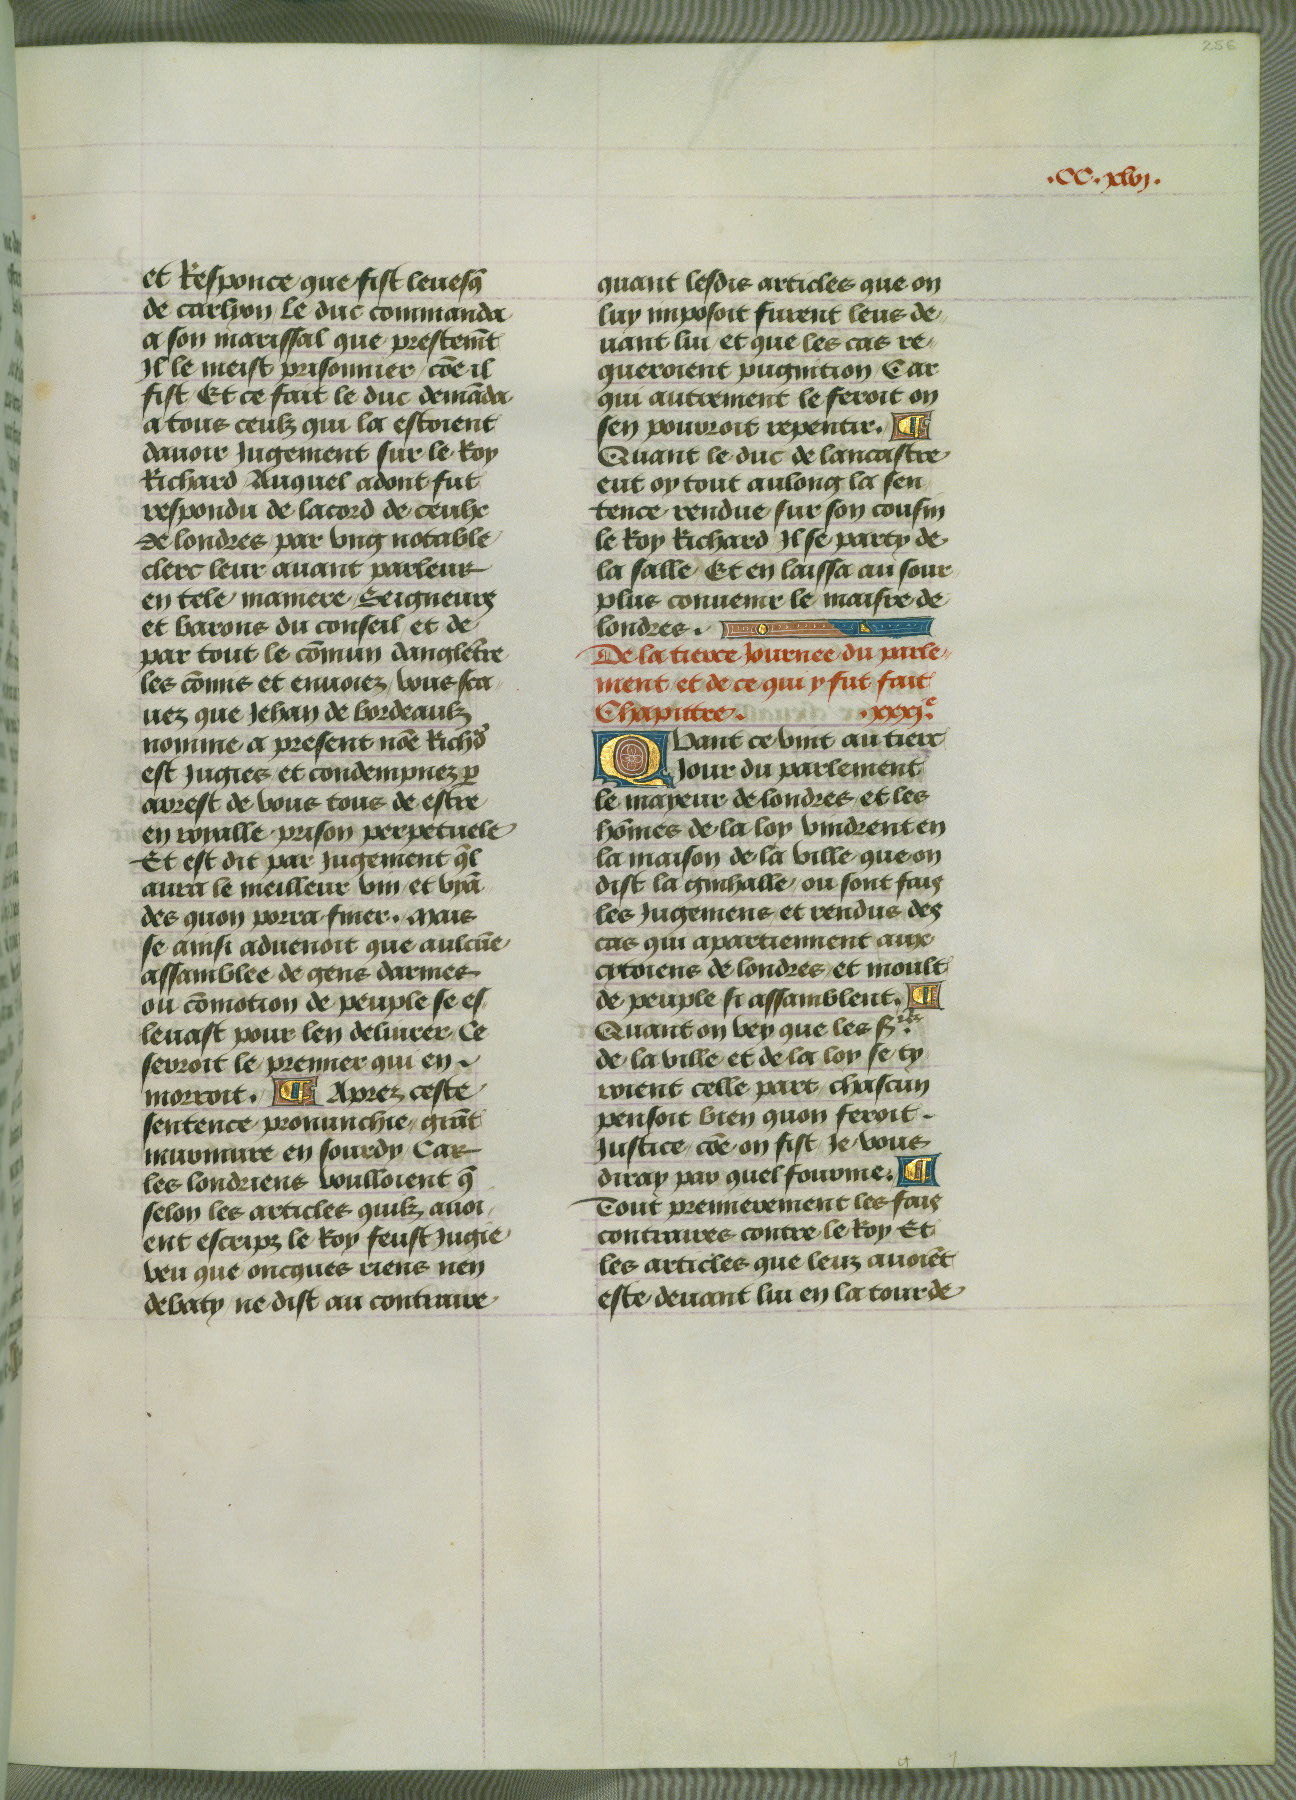 256
.CC.xlvj.
et Responce que fist leuesq̃
de carlyon Le duc commanda
a son marissal que prestem̃t
Il le meist prisonnier cõe il
fist Et ce fait le duc demãda
a tous ceulz qui la estoient
dauoir Jugement sur le Roy
Richard Auquel adont fut
respondu de lacord de ceulx
de londres par vng notable
clerc leur auant parleur
en tele maniere Seigneurs
et barons du conseil et de
par tout le cõmun dangletr̃e
les cõmis et enuoiez vous sca
uez que Jehan de bordeaulz
nomme a present nõe Richd̾
est Jugies et condempnez ꝑ
arrest de vous tous de estre
en royalle prison perpetuele
Et est dit par Jugement q̃l
aura le meilleur vin et viã
des quon porra finer. Mais
se ainsi aduenoit que aulcũe
assamblee de gens darmes
ou cõmotion de peuple se es
leuast pour len deliurer Ce
seroit le premier qui en
morroit. ¶ Aprez ceste
sentence pronunchie grãt
murmure en sourdy Car
les londriens voulloient q̃
selon les articles quilz auoi
ent escripz le Roy feust Jugie
veu que oncques riens nen
debaty ne dist au contraire
quant lesdis articles que on
luy imposoit furent leus de
uant lui et que les cas re
queroient pugnition Car
qui autrement le feroit on
sen pourroit repentir. ¶
Quant le duc de lancastre
eut oy tout aulong la sen
tence rendue sur son cousin
le Roy Richard Il se party de
la salle Et en laissa au sour
plus conuenir le maisre de
londres.
De la tierce Journee du parle
ment et de ce qui y fut fait
Chapittre. .xxxj.e
Quant ce vint au tierc
Jour du parlement
le mayeur de londres et les
hõmes de la loy vindrent en
la maison de la ville que on
dist la ginhalle ou sont fais
les Jugemens et rendus des
cas qui apartiennent aux
cytoiens de londres et moult
de peuple si assamblent. ¶
Quant on vey que les srs
de la ville et de la loy se ty
roient celle part chascun
pensoit bien quon feroit
Justice cõe on fist Je vous
diray par quel fourme. ¶
Tout premierement les fais
contraires contre le Roy Et
les articles que leuz auoiẽt
este deuant lui en la tour de